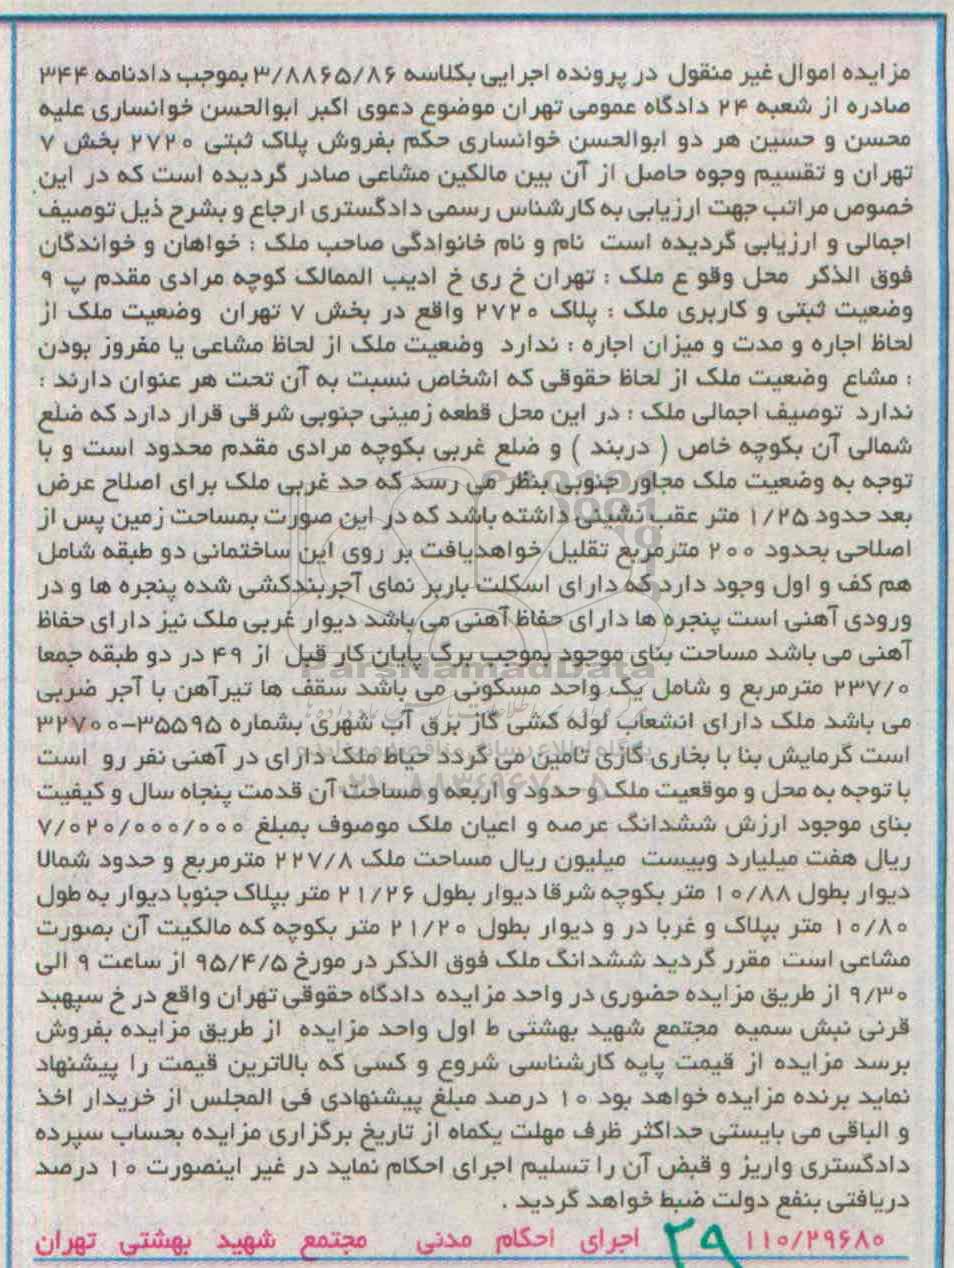 مزایده اموال غیر منقول در پرونده اجرایی بکلاسه ۳/۸۸۶۵/۸۶ بموجب دادنامه ۳۴۴
صادره از شعبه ۲۴ دادگاه عمومی تهران موضوع دعوی اکبر ابوالحسن خوانساری علیه
محسن و حسین هر دو ابوالحسن خوانساری حکم بفروش پلاک ثبتی ۲۷۲۰ بخش ۷
تهران و تقسیم وجوه حاصل از آن بین مالکین مشاعی صادر گردیده است که در این
خصوص مراتب جهت ارزیابی به کارشناس رسمی دادگستری ارجاع و بشرح ذیل توصیف
اجمالی و ارزیابی گردیده است نام و نام خانوادگی صاحب ملک : خواهان و خواندگان
فوق الذکر محل وقو ع ملک : تهران خ ری خ ادیب الممالک کوچه مرادی مقدم پ ۹
وضعیت ثبتی و کاربری ملک : پلاک ۲۷۲۰ واقع در بخش ۷ تهران وضعیت ملک از
لحاظ اجاره و مدت و میزان اجاره : ندارد وضعیت ملک از لحاظ مشاعی یا مفروز بودن
: مشاع وضعیت ملک از لحاظ حقوقی که اشخاص نسبت به آن تحت هر عنوان دارند :
ندارد توصیف اجمالی ملک : در این محل قطعه زمینی جنوبی شرقی قرار دارد که ضلع
شمالی آن بکوچه خاص ( دربند ) و ضلع غربی بکوچه مرادی مقدم محدود است و با
توجه به وضعیت ملک مجاور جنوبی بنظر می رسد که حد غربی ملک برای اصلاح عرض
بعد حدود ۱/۲۵ متر عقب نشینی داشته باشد که در این صورت بمساحت زمین پس از
اصلاحی بحدود ۲۰۰ مترمربع تقلیل خواهدیافت بر روی این ساختمانی دو طبقه شامل
هم کف و اول وجود دارد که دارای اسکلت باربر نمای آجربندکشی شده پنجره ها و در
ورودی آهنی است پنجره ها دارای حفاظ آهنی می باشد دیوار غربی ملک نیز دارای حفاظ
آهنی می باشد مساحت بنای موجود بموجب برگ پایان کار قبل از ۴۹ در دو طبقه جمعا
۲۳۷/۰ مترمربع و شامل یک واحد مسکونی می باشد سقف ها تیرآهن با آجر ضربی
می باشد ملک دارای انشعاب لوله کشی گاز برق آب شهری بشماره ۳۵۵۹۵-۳۲۷۰۰
است گرمایش بنا با بخاری گازی تامین می گردد حیاط ملک دارای در آهنی نفر رو است
با توجه به محل و موقعیت ملک و حدود و اربعه و مساحت آن قدمت پنجاه سال و کیفیت
بنای موجود ارزش ششدانگ عرصه و اعیان ملک موصوف بمبلغ ۷/۰۲۰/۰۰۰/۰۰۰
ریال هفت میلیارد وبیست میلیون ریال مساحت ملک ۲۲۷/۸ مترمربع و حدود شمالا
دیوار بطول ۱۰/۸۸ متر بکوچه شرقا دیوار بطول ۲۱/۲۶ متر بپلاک جنوبا دیوار به طول
۱۰/۸۰ متر بپلاک و غربا در و دیوار بطول ۲۱/۲۰ متر بکوچه که مالکیت آن بصورت
مشاعی است مقرر گردید ششدانگ ملک فوق الذکر در مورخ ۹۵/۴/۵ از ساعت ۹ الی
۹/۳۰ از طریق مزایده حضوری در واحد مزایده دادگاه حقوقی تهران واقع در خ سپهبد
قرنی نبش سمیه مجتمع شهید بهشتی ط اول واحد مزایده از طریق مزایده بفروش
برسد مزایده از قیمت پایه کارشناسی شروع و کسی که بالاترین قیمت را پیشنهاد
نماید برنده مزایده خواهد بود ۱۰ درصد مبلغ پیشنهادی فی المجلس از خریدار اخذ
و الباقی می بایستی حداکثر ظرف مهلت یکماه از تاریخ برگزاری مزایده بحساب سپرده
دادگستری واریز و قبض آن را تسلیم اجرای احکام نماید در غیر اینصورت ۱۰ درصد
دریافتی بنفع دولت ضبط خواهد گردید .
۱۱۰/۲۹۶۸۰ ۲۹ اجرای احکام مدنی مجتمع شهید بهشتی تهران
ParsNamadData